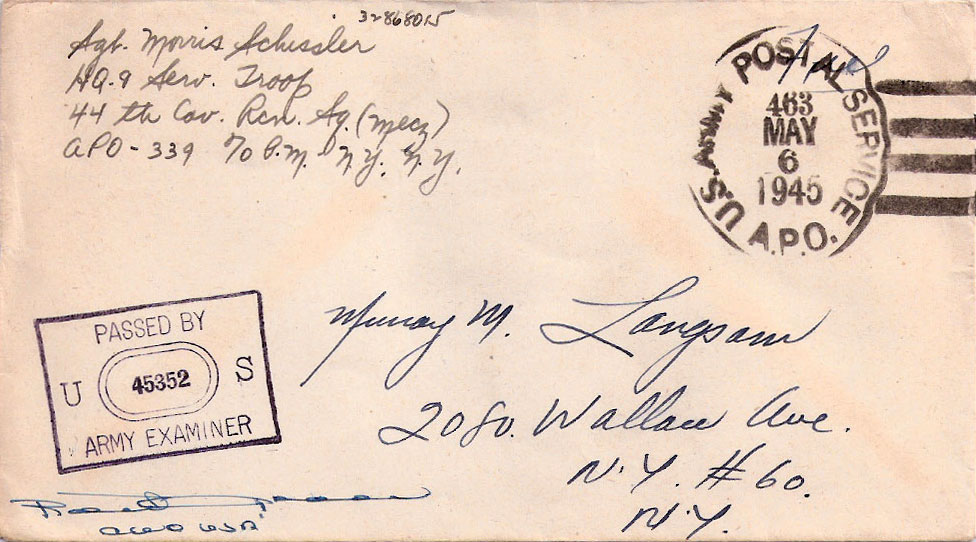 32868015
Sgt. Morris Schissler
HQ. 9 Serv. Troop
44 th Cav. Rcn. Sq. (mecz)
APO - 339 % P.M. N.Y. N.Y.
Free
U.S. ARMY POSTAL SERVICE
463
MAY
6
1945
A.P.O.
PASSED BY
U 45352 S
ARMY EXAMINER
Murray M. Langsam
2080. Wallace Ave.
N.Y. # 60.
N.Y.